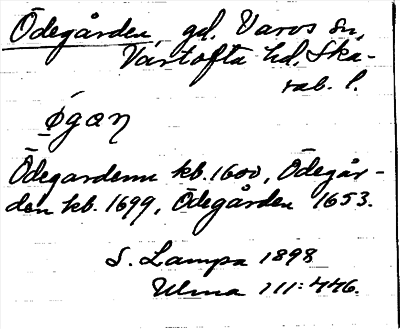 Ödegården, gd. Varos sn,
Vartofta hd, Ska-
rab. l.
øgæŋ
Ödegardenn kb. 1600, Ödegår-
den kb. 1699, Ödegården 1653.
S. Lampa 1898
Ulma 111:446.